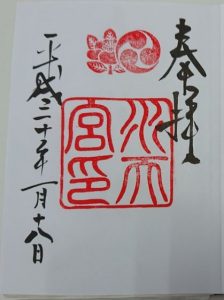 奉拝
水天
宮印
平成三十年一月十八日